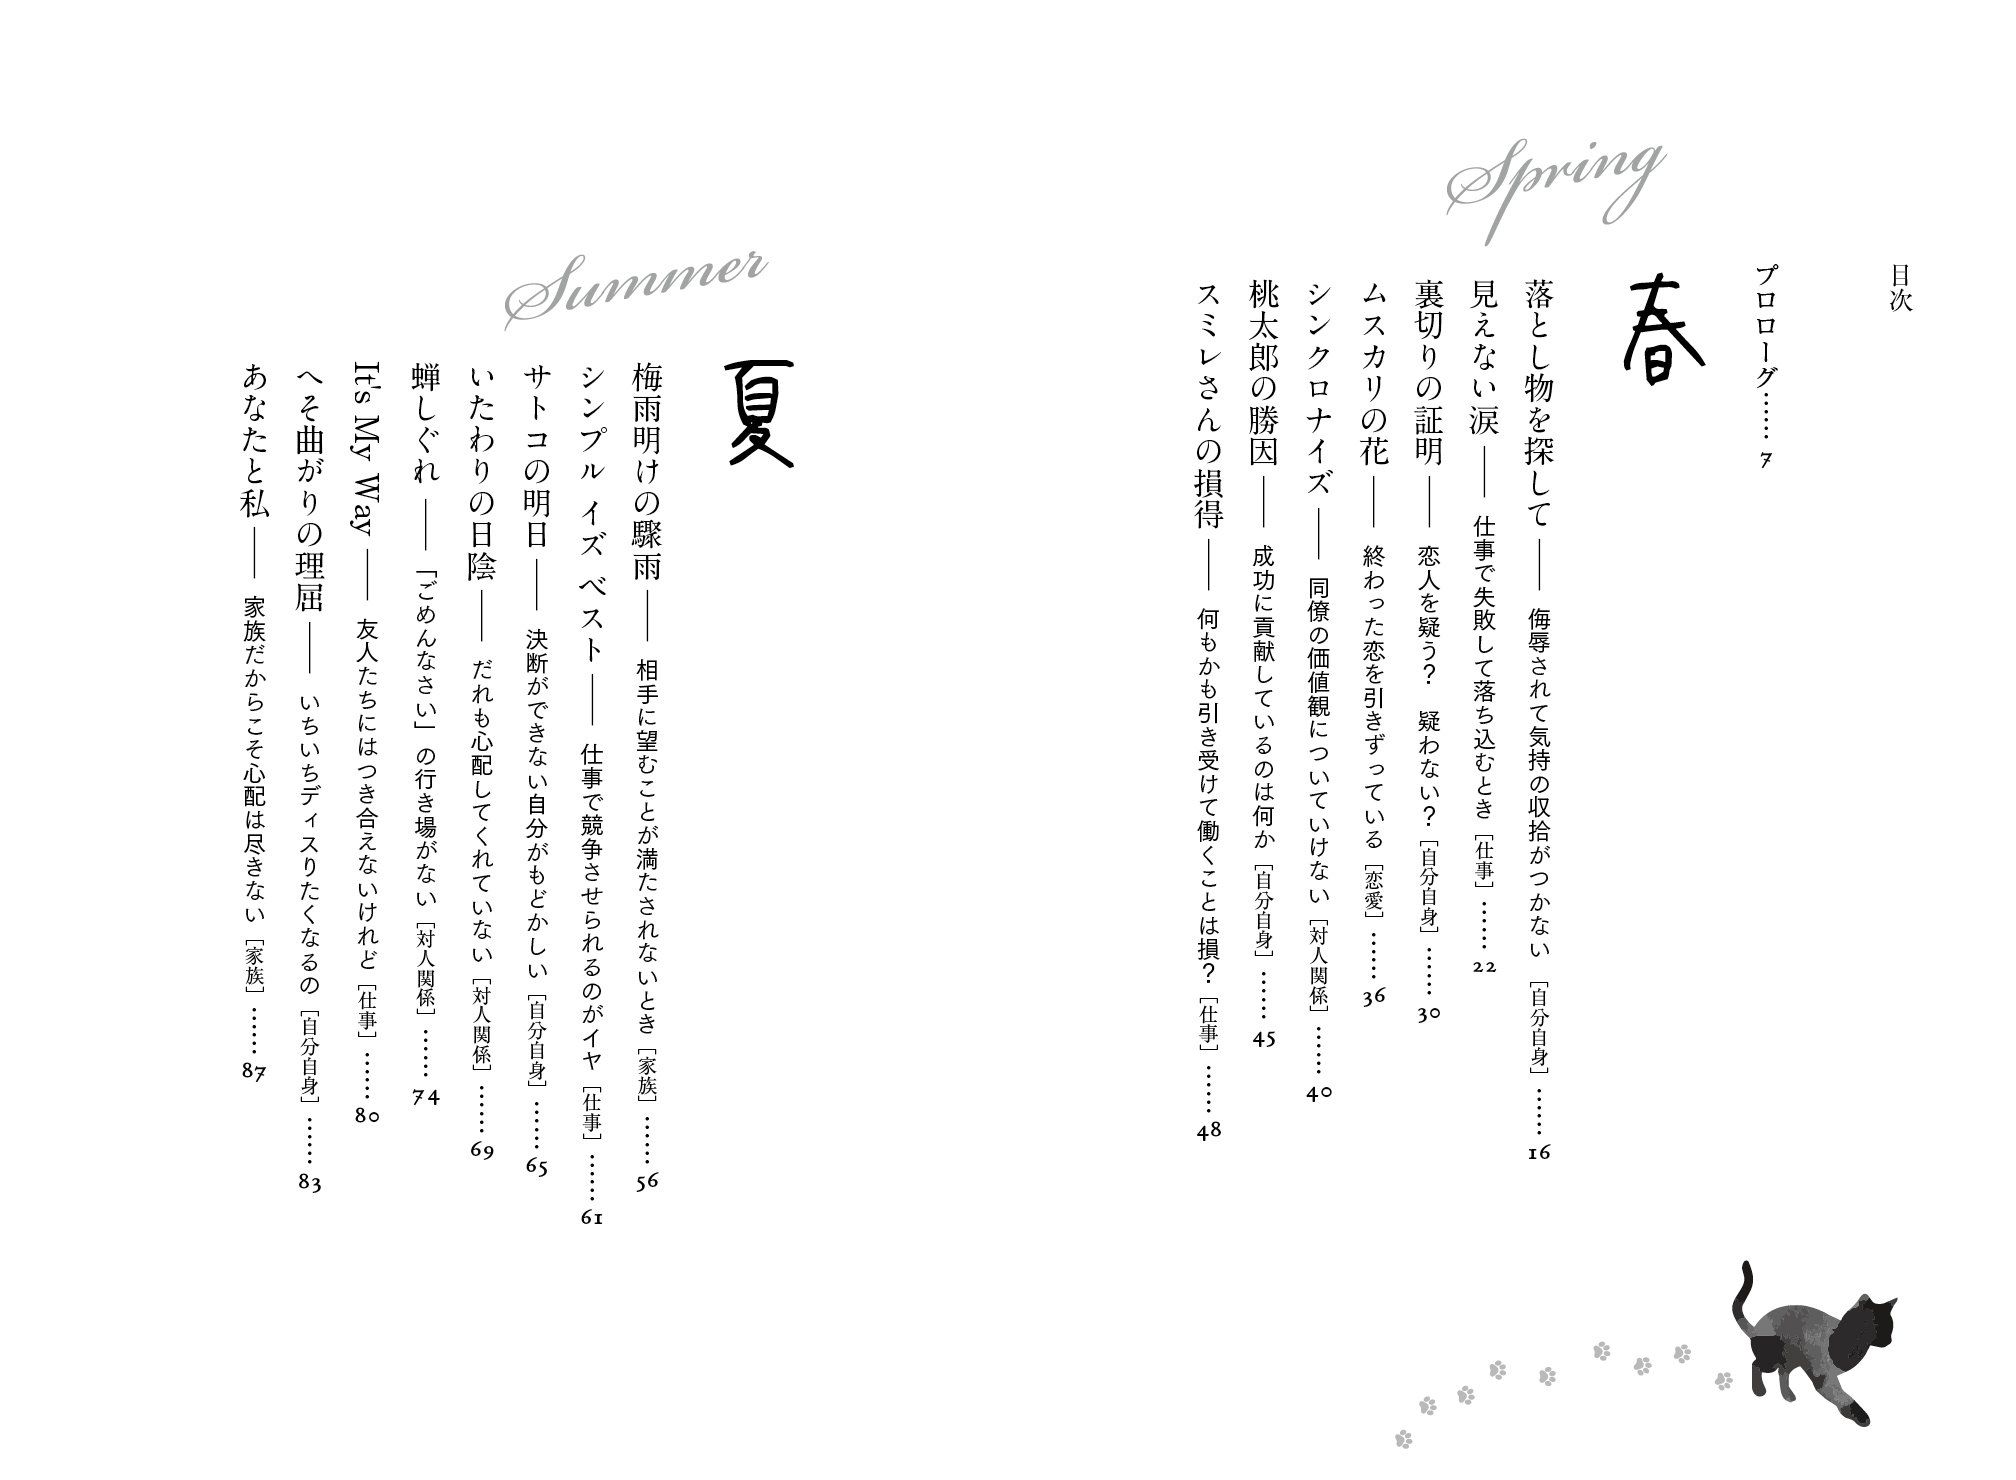 目次
プロローグ…… 7
Spring
春
落とし物を探して —— 侮辱されて気持の収拾がつかない ［自分自身］ …… 16
見えない涙 —— 仕事で失敗して落ち込むとき ［仕事］ …… 22
裏切りの証明 —— 恋人を疑う？　疑わない？ ［自分自身］ …… 30
ムスカリの花 —— 終わった恋を引きずっている ［恋愛］ …… 36
シンクロナイズ —— 同僚の価値観についていけない ［対人関係］ …… 40
桃太郎の勝因 —— 成功に貢献しているのは何か ［自分自身］ …… 45
スミレさんの損得 —— 何もかも引き受けて働くことは損？ ［仕事］ …… 48
Summer
夏
梅雨明けの驟雨 —— 相手に望むことが満たされないとき ［家族］ …… 56
シンプル イズ ベスト —— 仕事で競争させられるのがイヤ ［仕事］ …… 61
サトコの明日 —— 決断ができない自分がもどかしい ［自分自身］ …… 65
いたわりの日陰 —— だれも心配してくれていない ［対人関係］ …… 69
蝉しぐれ —— 「ごめんなさい」の行き場がない ［対人関係］ …… 74
It's My Way —— 友人たちにはつき合えないけれど ［仕事］ …… 80
へそ曲がりの理屈 —— いちいちディスりたくなるの ［自分自身］ …… 83
あなたと私 —— 家族だからこそ心配は尽きない ［家族］ …… 87